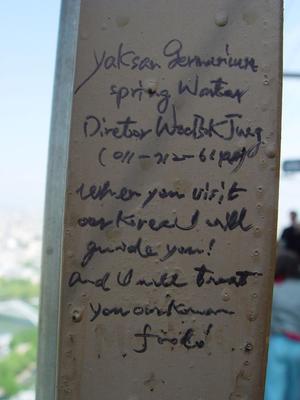 yaksan Germanium
spring Water
Diretor Woo
(011-212-6
When you visit
our Korea I will
guide you!
And I will treat
you our Korean
food!